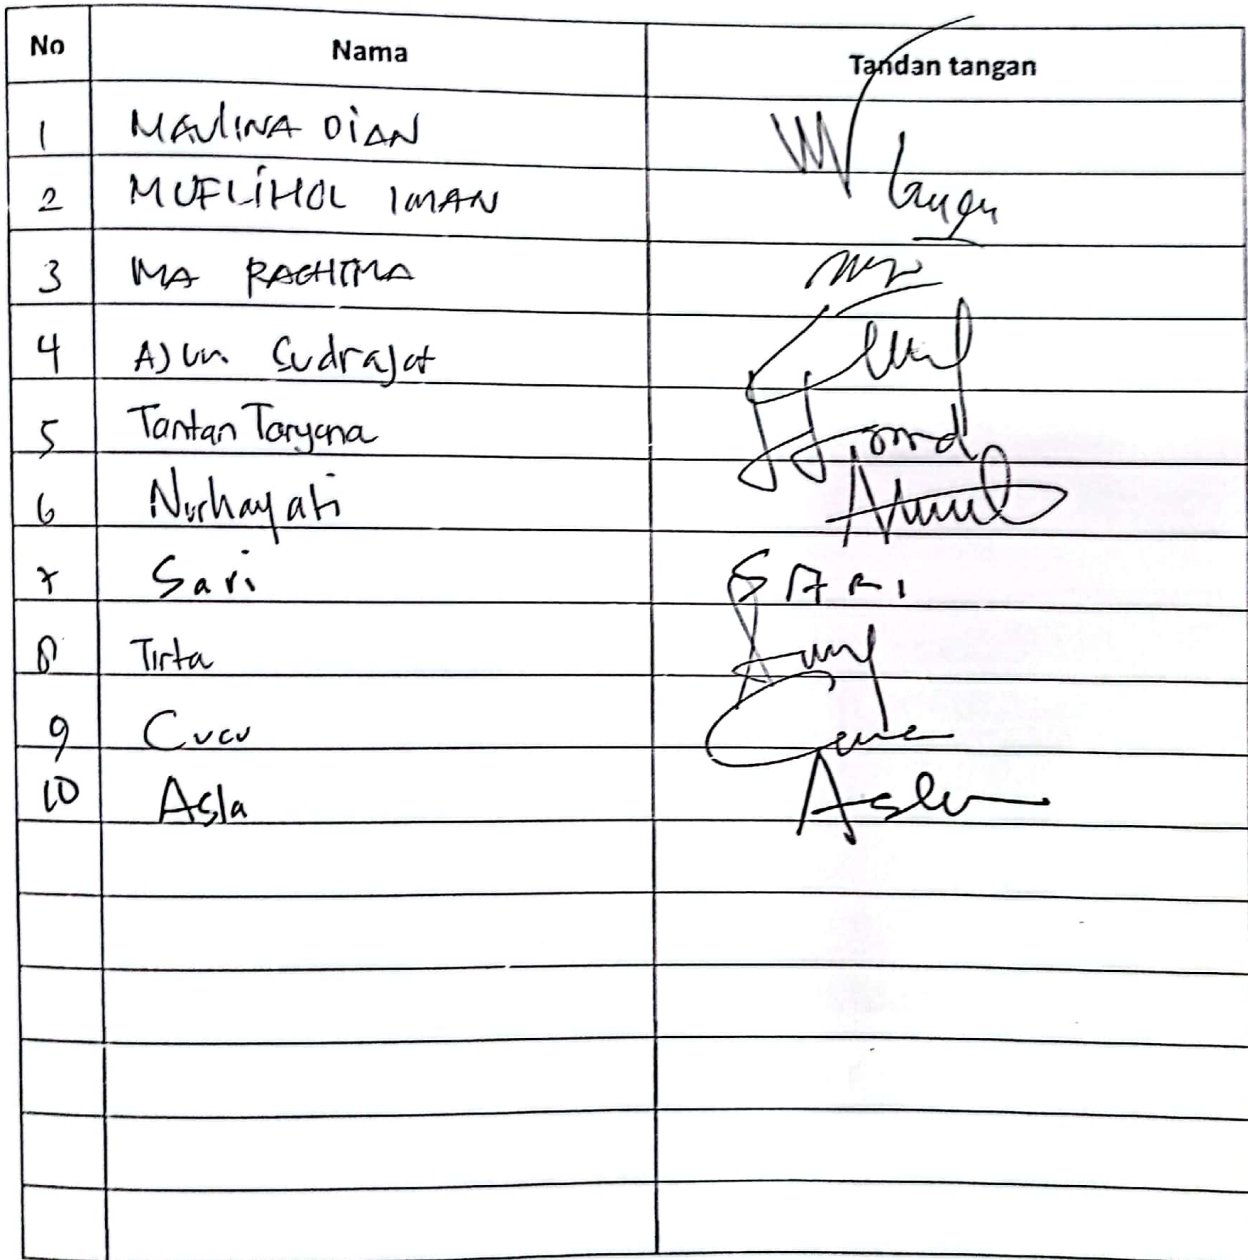 No Nama Tandan tangan
1 MAULINA DIAN
2 MUFLIHOL IMAN
3 IMA RACHTMA
4 Ajun Sudrajat
5 Tantan Taryana
6 Nurhayati
7 Sari SARI
8 Tirta
9 Cucu
10 Asla Asla